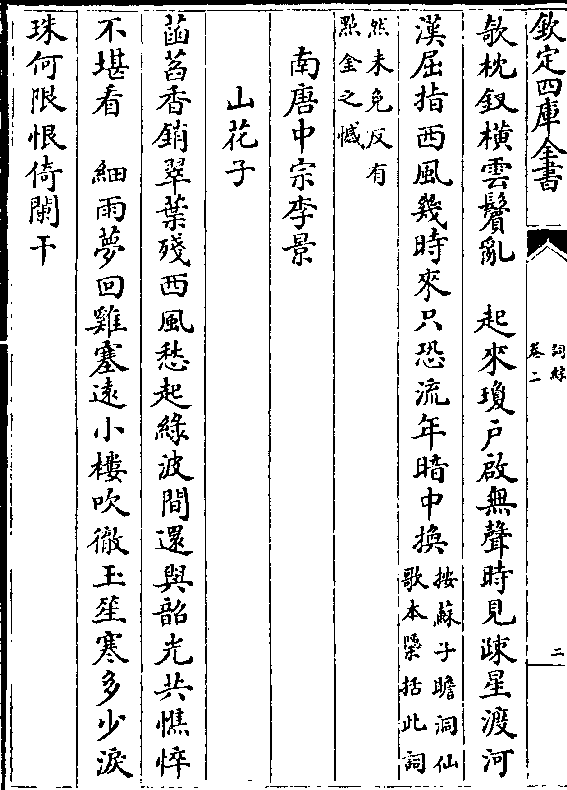 欽定四庫全書
詞綜
卷二
二
欹枕釵橫雲鬢亂　起來瓊戶啟無聲時見疎星渡河
漢屈指西風幾時來只恐流年暗中換
按蘇子瞻洞仙
歌本櫽括此詞
然未免反有
點金之憾
南唐中宗李景
山花子
菡萏香銷翠葉殘西風愁起綠波間還與韶光共憔悴
不堪看　細雨夢回雞塞遠小樓吹徹玉笙寒多少淚
珠何限恨倚闌干